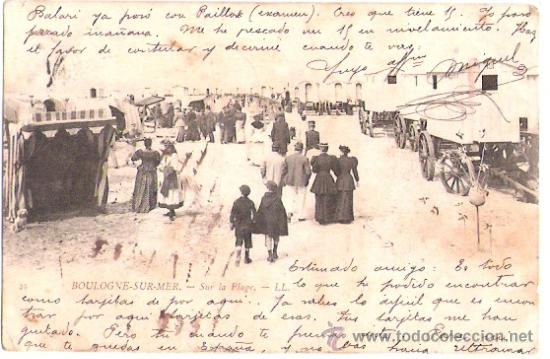 Balari ya pasó con Paillos (examen). Creo que tiene 15. Yo paso
pasado mañana. Me he pescado un 15 en nivelamiento. Haz
el favor de continuar y decirme cuando te vas
Tuyo affmo Miguel
21 BOULOGNE-SUR-MER. — Sur la Plage. — LL.
Estimado amigo: Es todo
lo que he podido encontrar
como tarjetas de por aquí. Ya sabes lo difícil que es encon
trar por aquí tarjetas de esas. Tus tarjetas me han
gustado. Pero tu cuando te
que te quedas en España, y no
www.todocoleccion.net